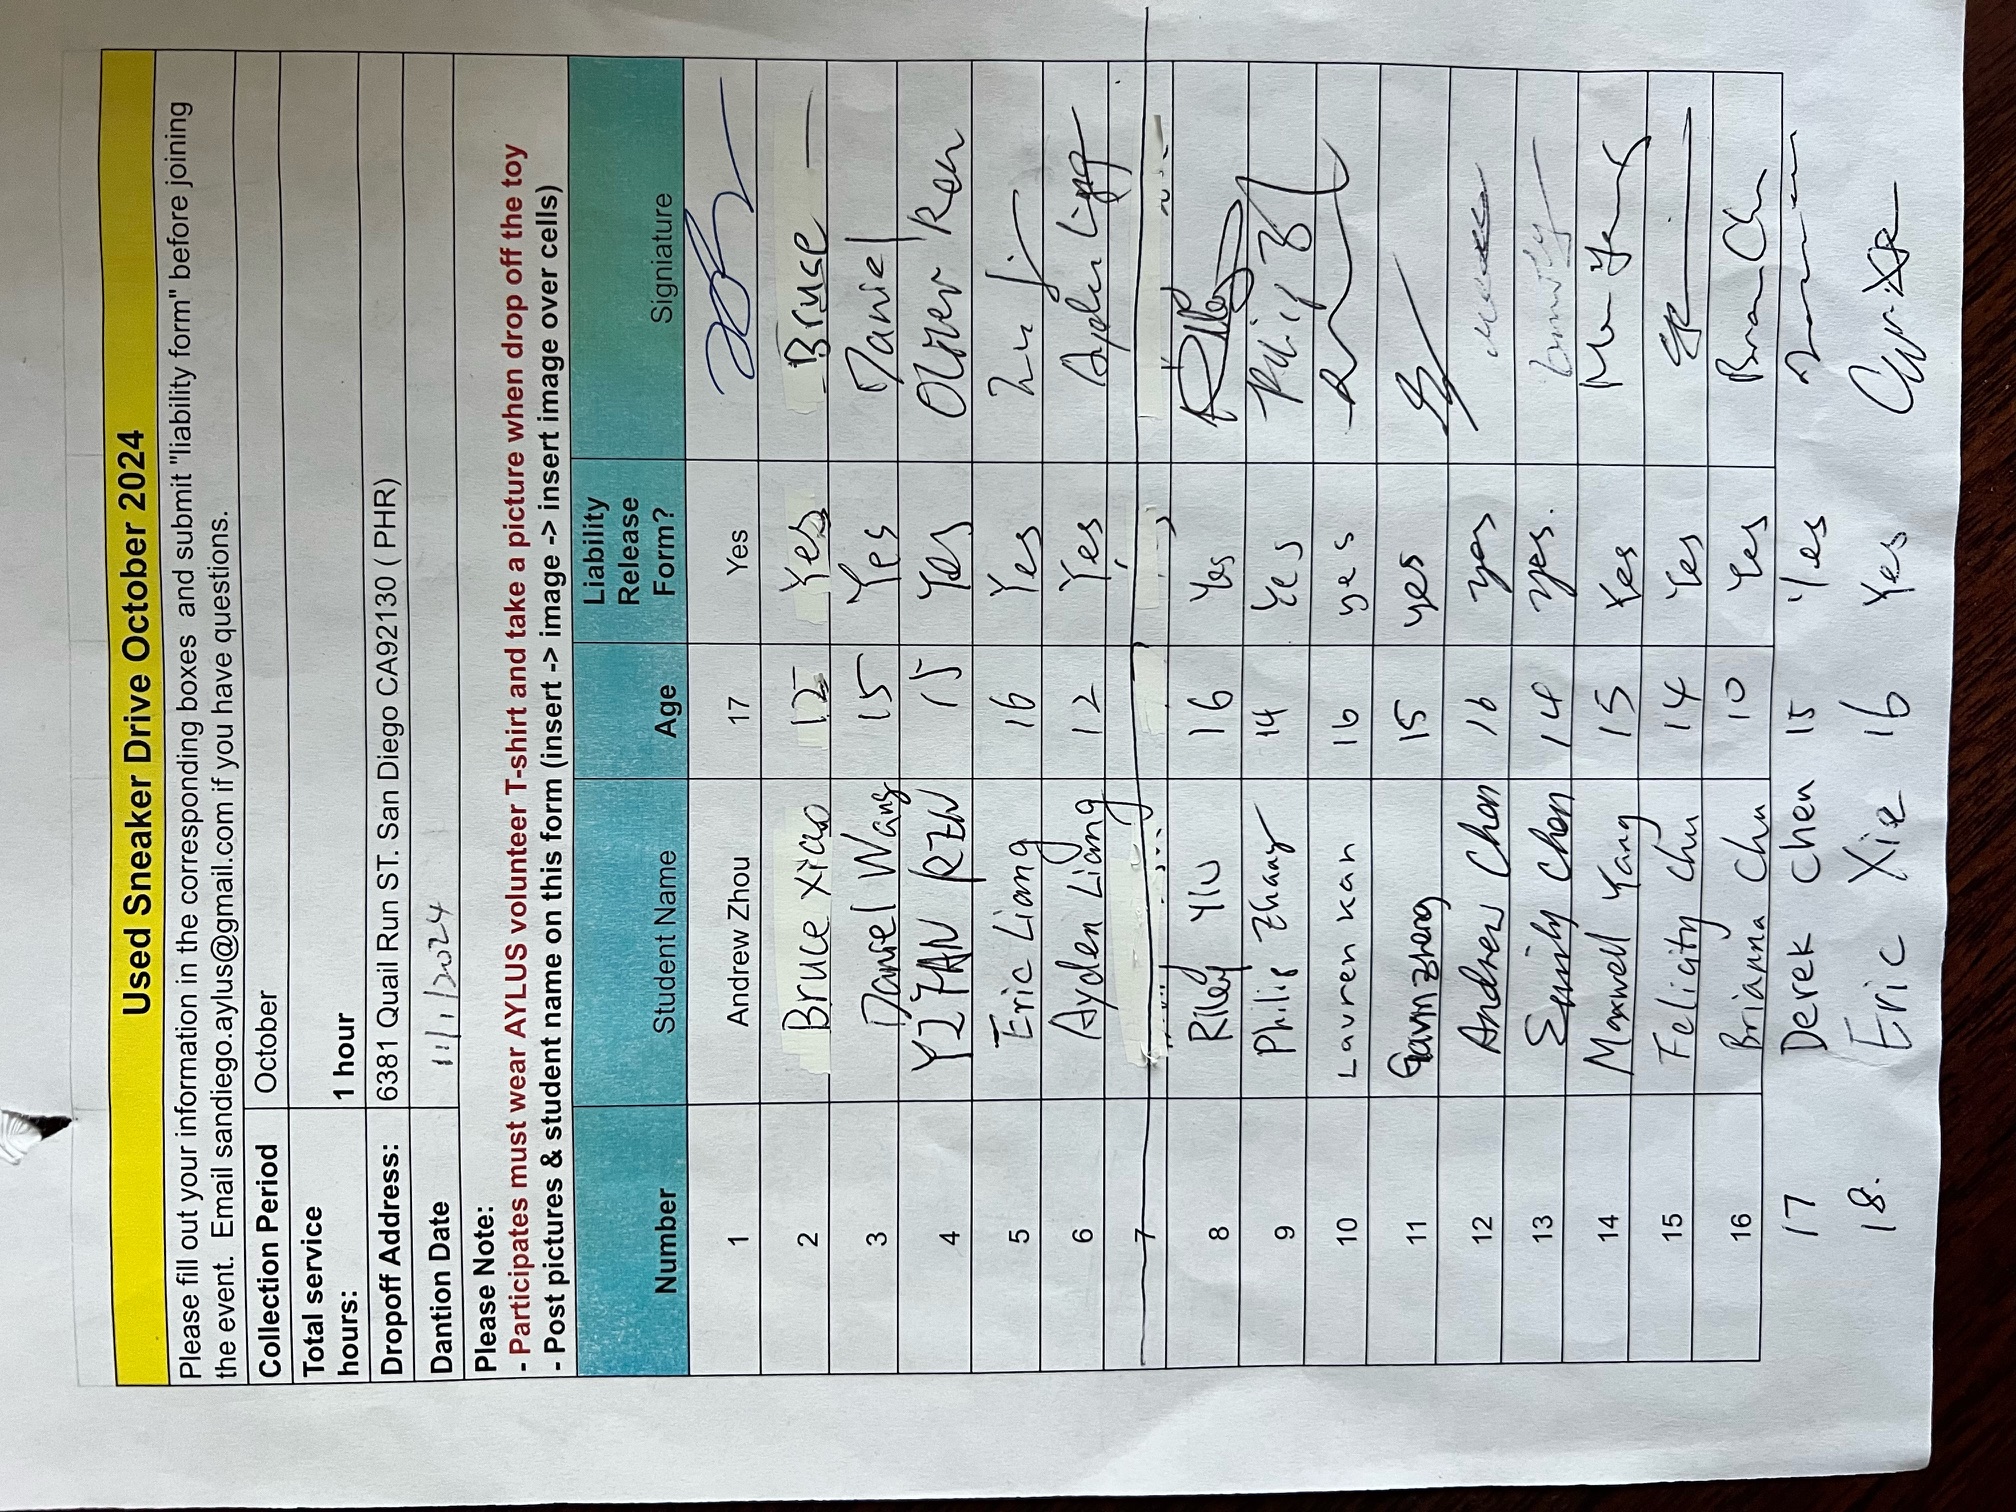 Used Sneaker Drive October 2024
Please fill out your information in the corresponding boxes and submit "liability form" before joining
the event. Email sandiego.aylus@gmail.com if you have questions.
Collection Period October
Total service hours: 1 hour
Dropoff Address: 6381 Quail Run ST. San Diego CA92130 ( PHR)
Dantion Date 11/1/2024
Please Note:
- Participates must wear AYLUS volunteer T-shirt and take a picture when drop off the toy
- Post pictures & student name on this form (insert -> image -> insert image over cells)
Number Student Name Age Liability Release Form? Signiature
1 Andrew Zhou 17 Yes
2 Bruce Xiao 12 Yes Bruse
3 Daniel Wang 15 Yes Daniel
4 YIZAN REN 15 Yes Oliver Ren
5 Eric Liang 16 Yes
6 Ayden Liang 12 Yes Ayden Liang
7
8 Riley YIU 16 Yes Riley
9 Philip Zhang 14 Yes Philip
10 Lauren Kan 16 yes
11 15 yes
12 Andrew Chen 16 yes
13 Emily Chen 14 yes.
14 Maxwell Yang 15 Yes
15 Felicity Chu 14 Yes
16 Brianna Chu 10 Yes
17 Derek Chen 15 Yes
18. Eric Xie 16 Yes